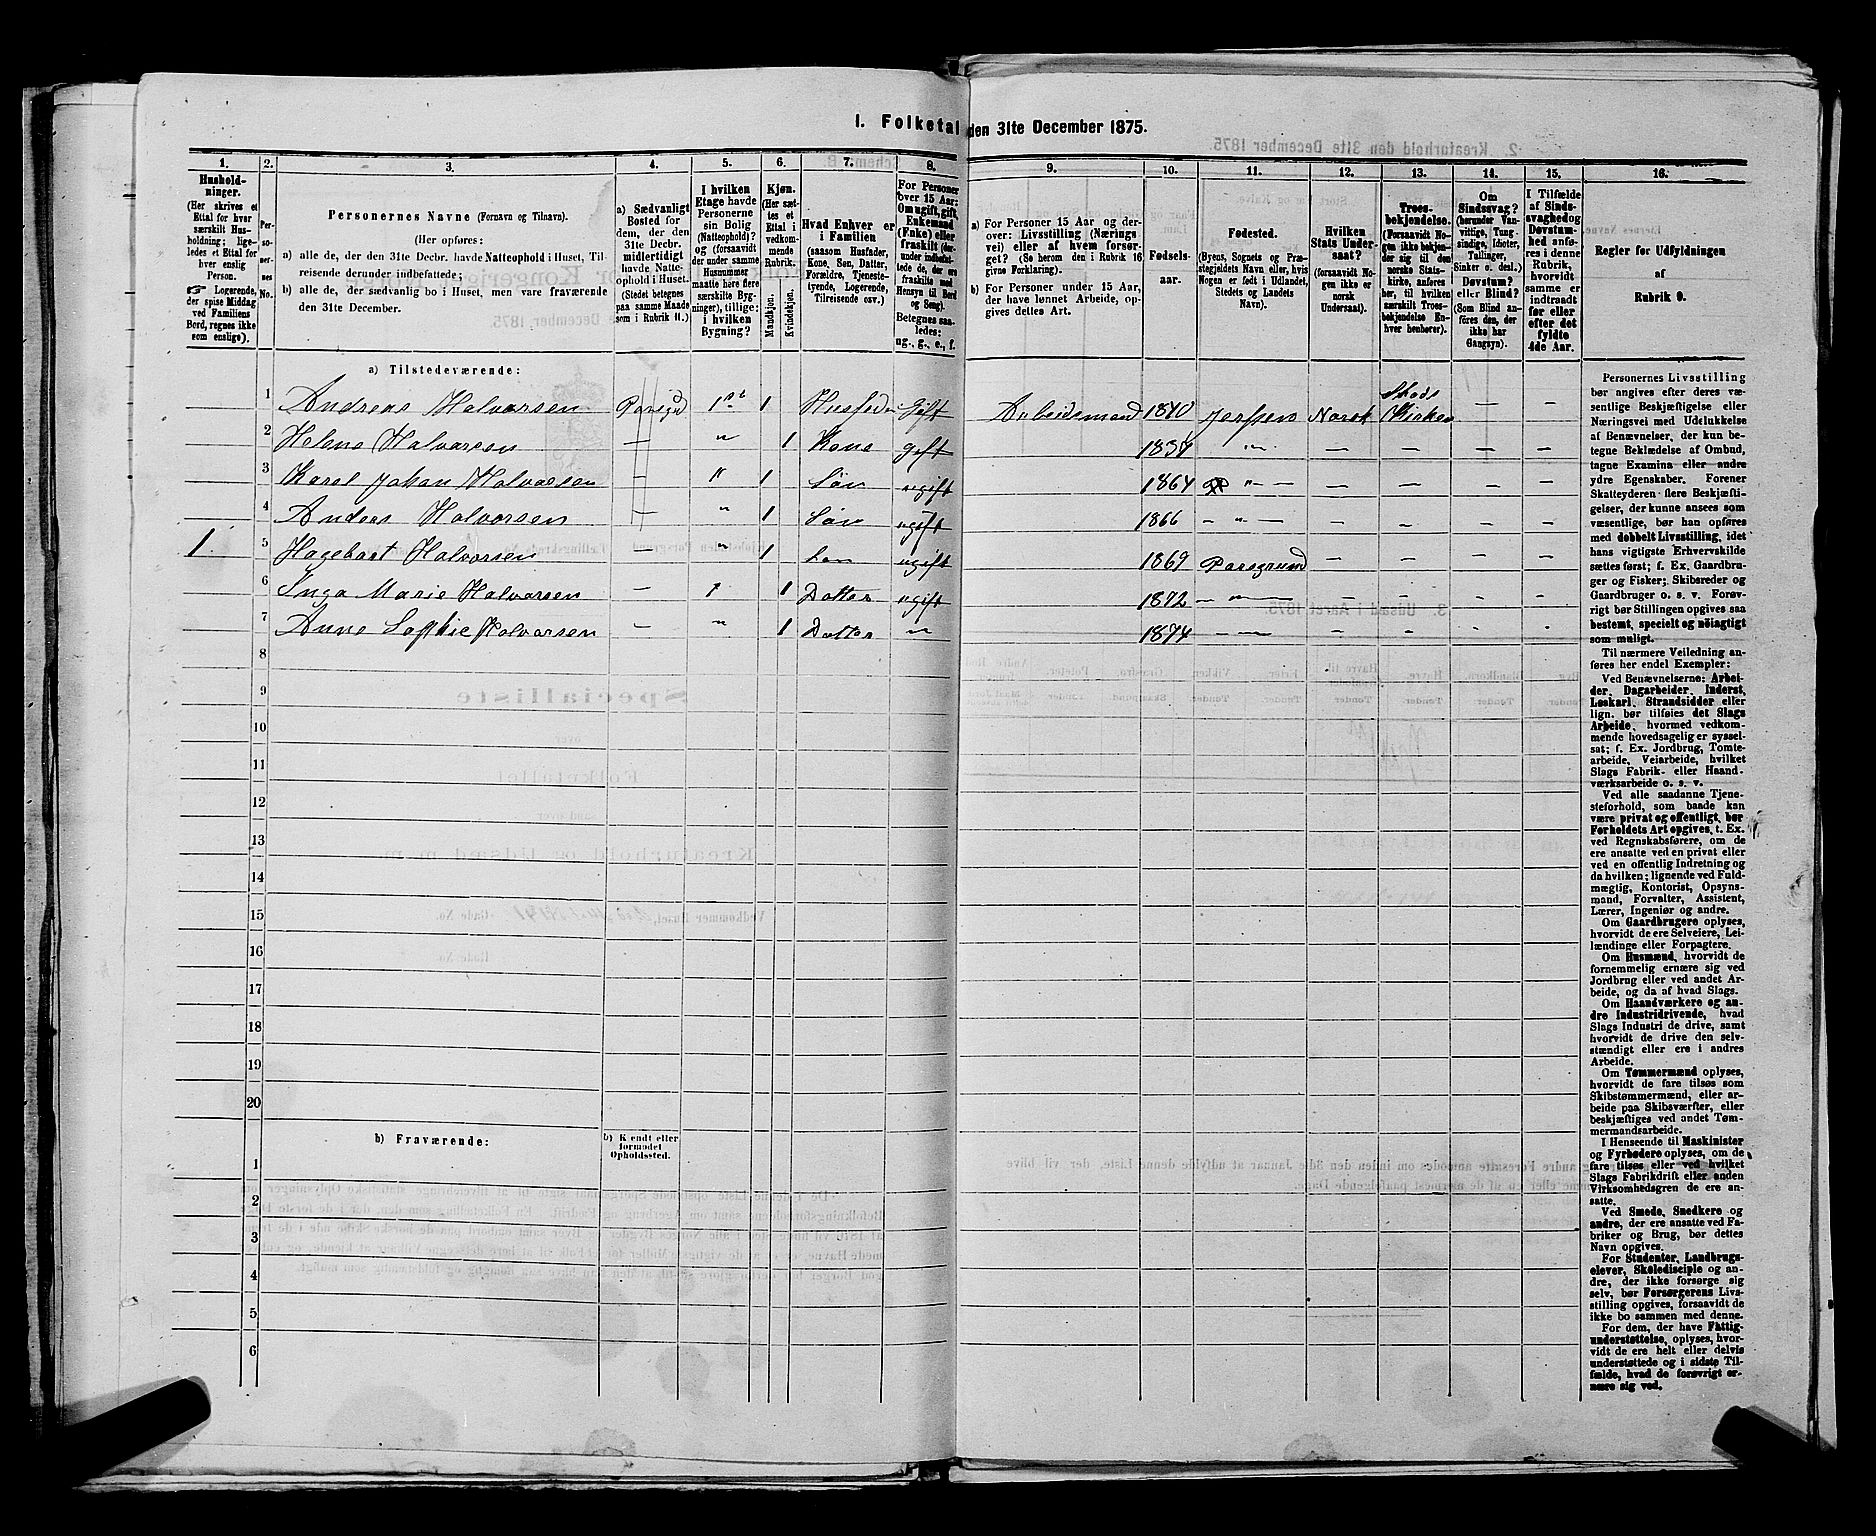 I. Folketal den 31te December 1875.
1. 2. 3. 4. 5. 6. 7. 8. 9. 10. 11. 12. 13. 14. 15. 16.
Hushold-
ninger.
(Her skrives et
Ettal for hver
særskilt Hus-
holdning; lige-
ledes et Ettal for
hver enslig
Person.
Logerende,
der spise Middag
ved Familiens
Bord, regnes ikke
som enslige).
Per-
so-
ner-
nes
No.
Personernes Navne (Fornavn og Tilnavn).
(Her opføres:
a) alle de, der den 31te Decbr. havde Natteophold i Huset, Til-
reisende derunder indbefattede;
b) alle de, der sædvanlig bo i Huset, men vare fraværende
den 31te December.
a) Sædvanligt
Bosted for
dem, der den
31te Decbr.
midlertidigt
havde Natte-
ophold i Huset.
(Stedet betegnes
paa samme Maade
som i Rubrik 11.)
I hvilken
Etage havde
Personerne
sin Bolig
(Natteophold)?
og (forsaavidt
der under samme
Husnummer
maatte høre flere
særskilte Byg-
ninger), tillige:
i hvilken
Bygning?
Kjøn.
(Her sæt-
tes et
Ettal i
vedkom-
mende
Rubrik.
Mandkjøn.
Kvindekjøn.
Hvad Enhver er
i Familien
(saasom Husfader,
Kone, Søn, Datter,
Forældre, Tjeneste-
tyende, Logerende,
Tilreisende osv.)
For Personer
over 15 Aar:
Om ugift, gift,
Enkemand
(Enke) eller
fraskilt
Betegnes saa-
ledes:
ug., g., e., f.
a) For Personer 15 Aar og der-
over: Livsstilling (Nærings-
vei) eller af hvem forsør-
get? (Se herom den i Rubrik 16
givne Forklaring).
b) For Personer under 15 Aar,
der have lønnet Arbeide, op-
gives dettes Art.
Fødsels-
aar.
Fødested.
(Byens, Sognets og Præ-
stegjeldets Navn eller, hvis
Nogen er født i Udlandet,
Stedets og Landets
Navn).
Hvilken
Stats Under-
saat?
(forsaavidt No-
gen ikke er
norsk
Undersaat).
Troes-
bekjendelse.
(Forsaavidt No-
gen ikke bekjen-
der sig til den
norske Stats-
kirke, anføres
her, til hvilken
særskilt Troes-
bekjendelse En-
hver henhører).
Om
Sindssvag?
(herunder Van-
vittige, Tung-
sindige, Idioter,
Tallinger,
Sinker o. desl.)
Døvstum?
eller Blind?
(Som Blind an-
føres den, der
ikke har
Gangsyn).
I Tilfælde
af Sinds-
svaghed og
Døvstum-
hed anfø-
res i denne
Rubrik,
hvorvidt
samme er
indtraadt
før eller
efter det
fyldte
4de Aar.
Regler for Udfyldningen
af
Rubrik 9.
a) Tilstedeværende:
1 Andreas Halvorsen 1 Husfader Gift Arbeidsmand 1840 Norsk Kirken — —
2 Helene Halvorsen — " 1 Kone gift " — — — —
3 Karel Johan Halvorsen — " 1 Søn ugift 1864 " — — — — —
4 Anders Halvorsen — " 1 Søn ugift 1866 — " — — — — —
1. 5 Hagebart Halvorsen — " 1 ugift 1869 Porsgrund — — — —
6 Inga Marie Halvorsen — 1 Datter ugift 1872 — " — — — — —
7 Anne Sophie Halvorsen — " 1 Datter " 1874 — — — — — —
8
9
10
11
12
13
14
15
16
17
18
19
20
b) Fraværende:
b) Kjendt eller
formodet
Opholdssted.
1
2
3
4
5
6
Personernes Livsstilling
bør angives efter deres væ-
sentlige Beskjæftigelse eller
Næringsvei med Udelukkelse
af Benævnelser, der kun be-
tegne Beklædelse af Ombud,
tagne Examina eller andre
ydre Egenskaber. Forener
Skatteyderen flere Beskjæfti-
gelser, der kunne ansees som
væsentlige, bør han opføres
med dobbelt Livsstilling, idet
hans vigtigste Erhvervskilde
sættes først; f. Ex. Gaardbru-
ger og Fisker; Skibsreder og
Gaardbruger o. s. v. Forøv-
rigt bør Stillingen opgives saa
bestemt, specielt og nøiagtigt
som muligt.
Til nærmere Veiledning an-
føres her endel Exempler:
Ved Benævnelserne: Arbei-
der, Dagarbeider, Inderst,
Løskarl, Strandsidder eller
lign. bør tilføies det Slags
Arbeide, hvormed vedkom-
mende hovedsagelig er syssel-
sat; f. Ex. Jordbrug, Tomte-
arbeide, Veiarbeide, hvilket
Slags Fabrik- eller Haand-
værksarbeide o. s. v.
Ved alle saadanne Tjene-
steforhold, som baade kan
være privat og offentligt, bør
Forholdets Art opgives, t. Ex.
ved Regnskabsførere, om de
ere ansatte ved en privat eller
ved en offentlig Indretning og
da hvilken; lignende ved Fuld-
mægtig, Kontorist, Opsyns-
mand, Forvalter, Assistent,
Lærer, Ingeniør og andre.
Om Gaardbrugere oplyses,
hvorvidt de ere Selveiere, Lei-
lændinge eller Forpagtere.
Om Husmænd, hvorvidt de
fornemmelig ernære sig ved
Jordbrug eller ved andet Ar-
beide, og da af hvad Slags.
Om Haandværkere og an-
dre Industridrivende, hvad
Slags Industri de drive, samt
hvorvidt de drive den selv-
stændigt eller ere i andres
Arbeide.
Om Tømmermænd oplyses,
hvorvidt de fare tilsøs som
Skibstømmermænd, eller ar-
beide paa Skibsværfter, eller
beskjæftiges ved andet Tøm-
mermandsarbeide.
I Henseende til Maskinister
og Fyrbødere oplyses, om de
fare tilsøs eller ved hvilket
Slags Fabrikdrift eller anden
Virksomhedsgren de ere an-
satte.
Ved Smede, Snedkere og
andre, der ere ansatte ved Fa-
briker og Brug, bør dettes
Navn opgives.
For Studenter, Landbrugs-
elever, Skoledisciple og an-
dre, der ikke forsørge sig
selv, bør Forsørgerens Livs-
stilling opgives, forsaavidt de
ikke bo sammen med denne.
For dem, der have Fattig-
understøttelse, oplyses, hvor-
vidt de ere helt eller delvis
understøttede og i sidste Til-
fælde, hvad de forøvrigt er-
nære sig ved.